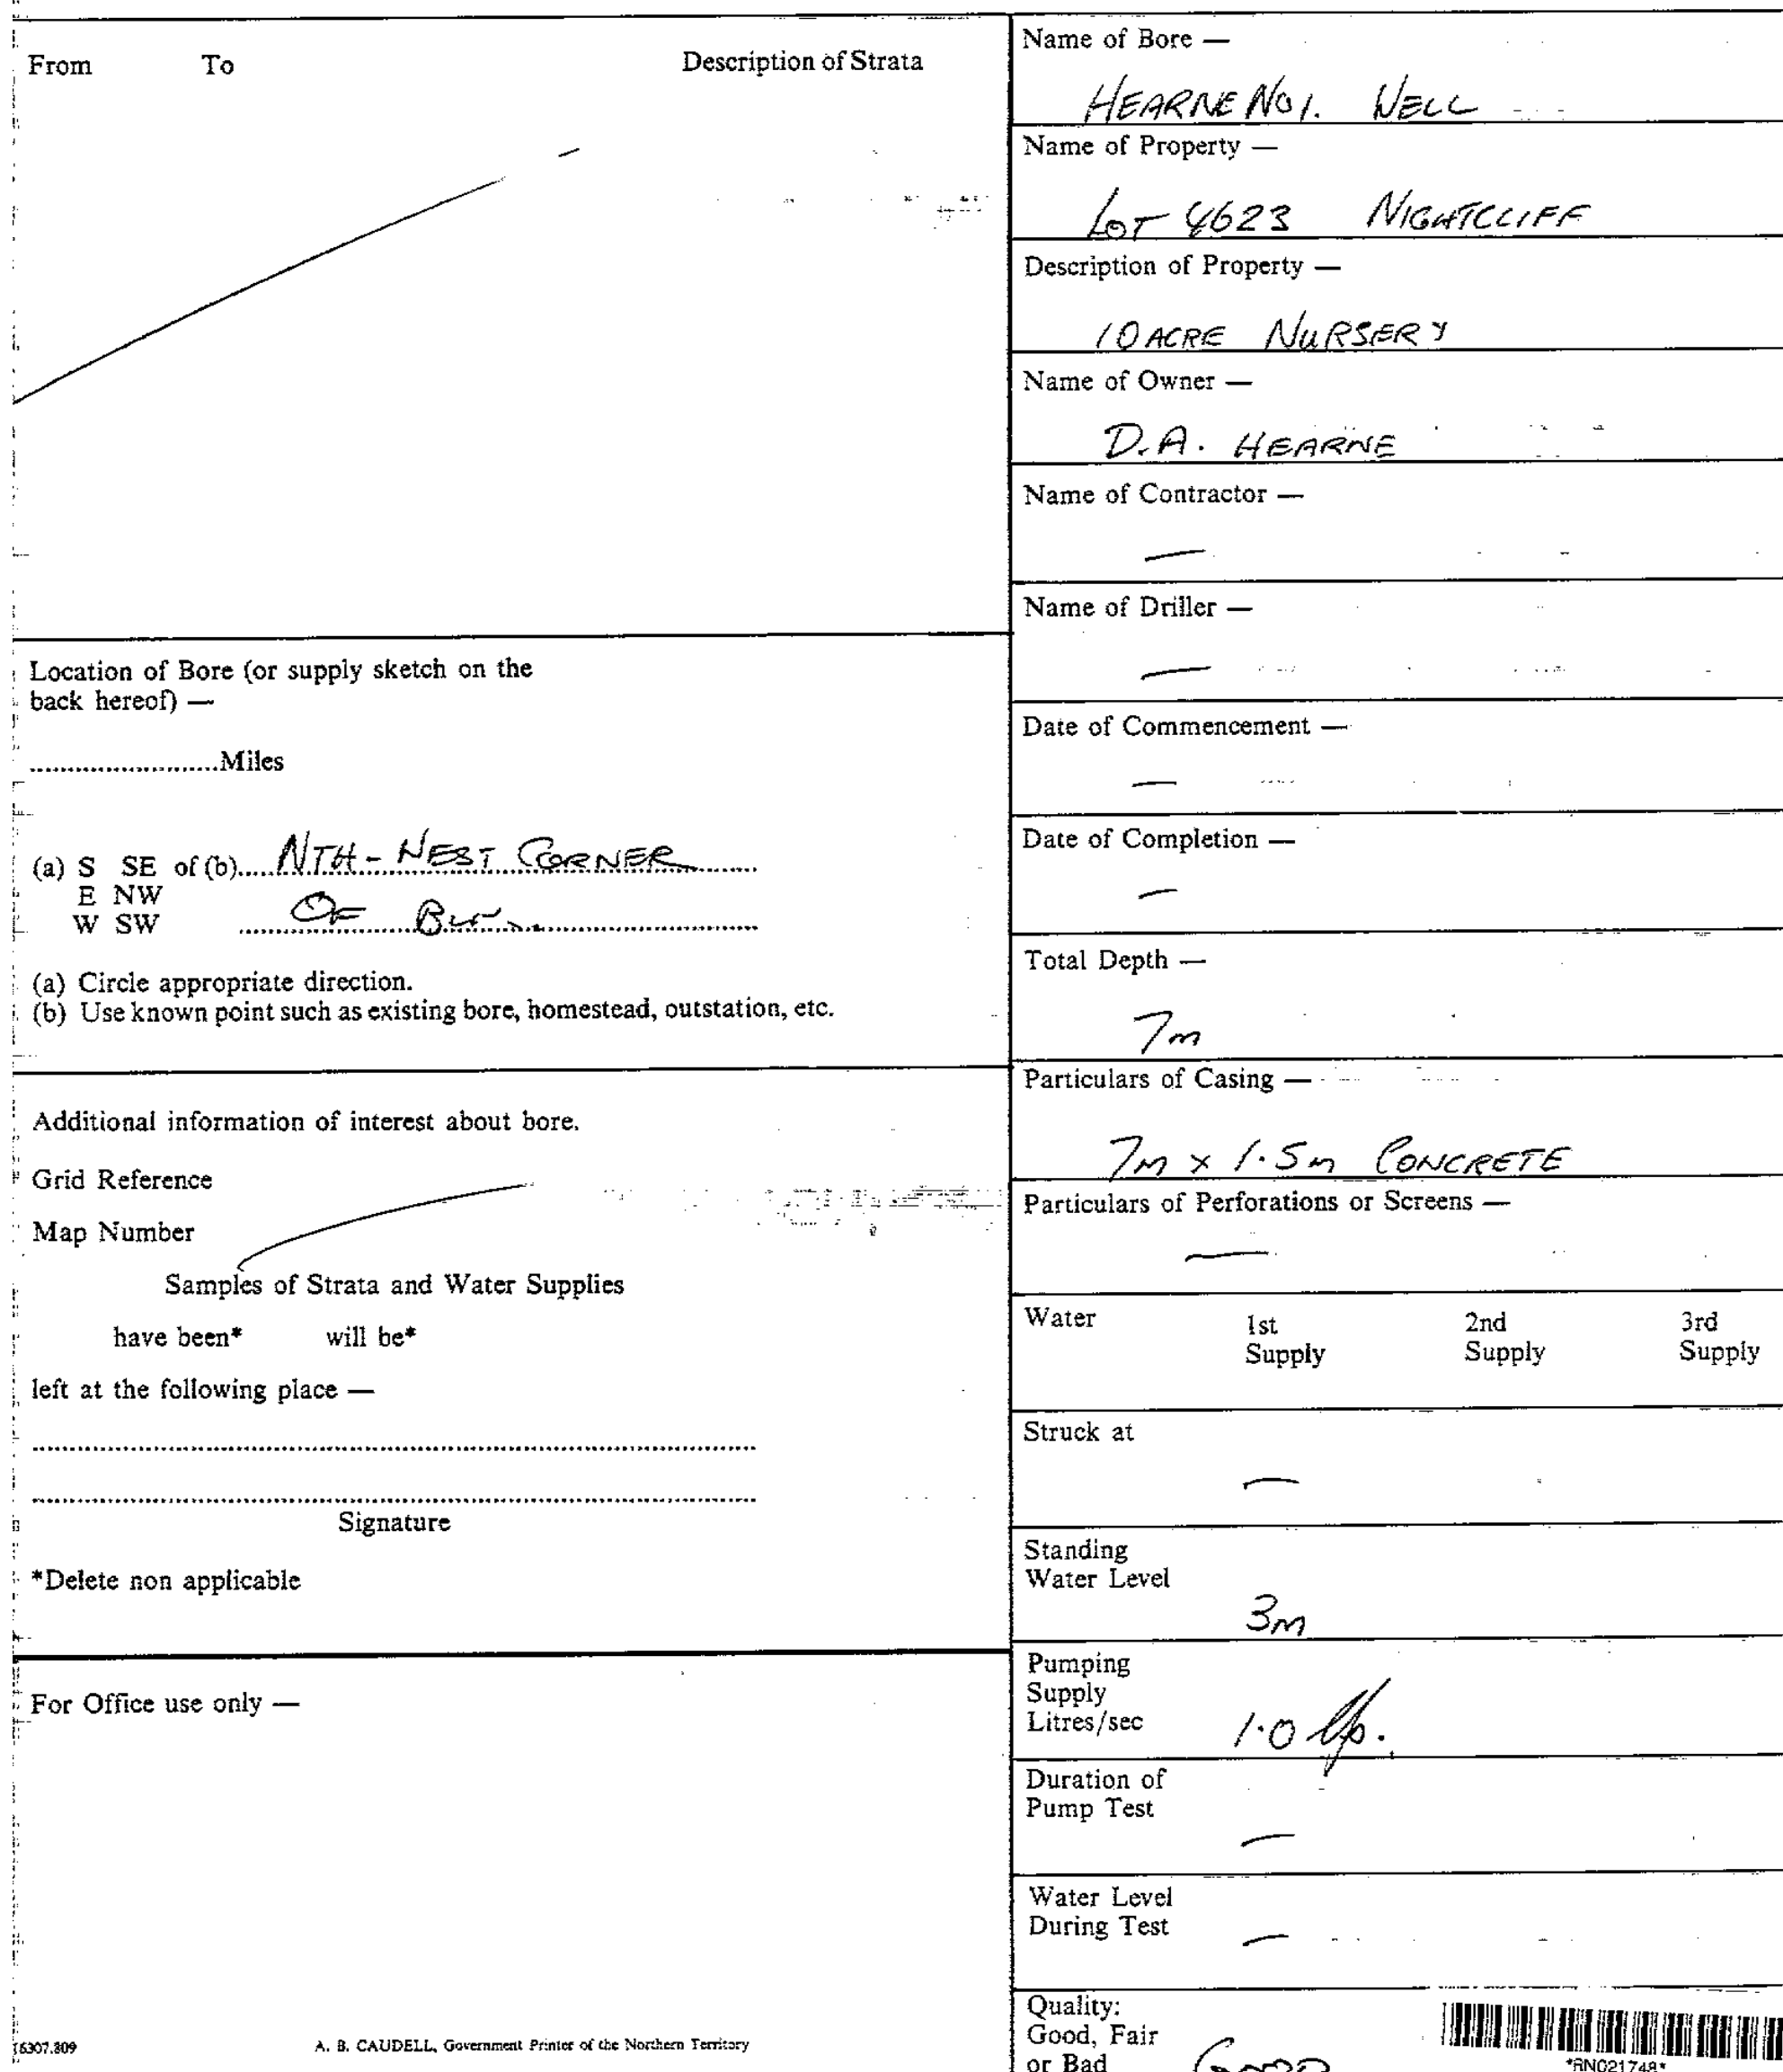 From To Description of Strata
Location of Bore (or supply sketch on the
back hereof) —
........................Miles
(a) S SE of (b)..... NTH - WEST CORNER
E NW
W SW OF
(a) Circle appropriate direction.
(b) Use known point such as existing bore, homestead, outstation, etc.
Additional information of interest about bore.
Grid Reference
Map Number
Samples of Strata and Water Supplies
have been* will be*
left at the following place —
Signature
*Delete non applicable
For Office use only —
A. B. CAUDELL, Government Printer of the Northern Territory
Name of Bore —
HEARNE NO1. WELL
Name of Property —
LOT 4623 NIGHTCLIFF
Description of Property —
10 ACRE NURSERY
Name of Owner —
D.A. HEARNE
Name of Contractor —
—
Name of Driller —
—
Date of Commencement —
—
Date of Completion —
—
Total Depth —
7m
Particulars of Casing —
7m x 1.5m CONCRETE
Particulars of Perforations or Screens —
—
Water 1st Supply 2nd Supply 3rd Supply
Struck at
—
Standing
Water Level
3m
Pumping
Supply
Litres/sec 1.0
Duration of
Pump Test
—
Water Level
During Test —
Quality:
Good, Fair
or Bad GOOD
*RN021748*